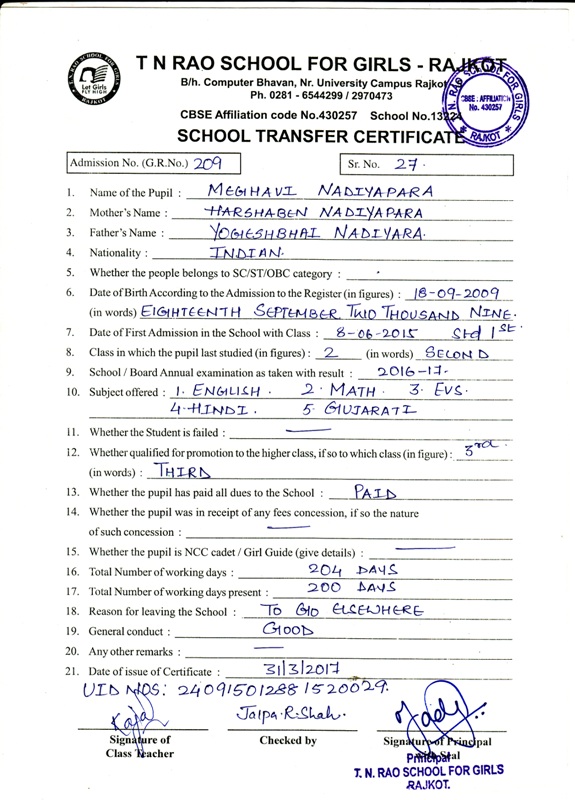 T N RAO SCHOOL FOR GIRLS - RAJKOT
B/h. Computer Bhavan, Nr. University Campus Rajkot
Ph. 0281 - 6544299 / 2970473
CBSE Affiliation code No.430257 School No.13224
SCHOOL TRANSFER CERTIFICATE
T. N. RAO SCHOOL FOR GIRLS
Let Girls
FLY HIGH
RAJKOT
T. N. RAO SCHOOL FOR GIRLS
CBSE : AFFILIATION
No. 430257
RAJKOT
Admission No. (G.R.No.) 209 Sr. No. 27.
1. Name of the Pupil : MEGHAVI NADIYAPARA
2. Mother's Name : HARSHABEN NADIYAPARA
3. Father's Name : YOGESHBHAI NADIYARA.
4. Nationality : INDIAN.
5. Whether the people belongs to SC/ST/OBC category :
6. Date of Birth According to the Admission to the Register (in figures) : 18-09-2009
(in words) EIGHTEENTH SEPTEMBER TWO THOUSAND NINE.
7. Date of First Admission in the School with Class : 8-06-2015 Std 1st.
8. Class in which the pupil last studied (in figures) : 2 (in words) SECOND
9. School / Board Annual examination as taken with result : 2016-17.
10. Subject offered : 1. ENGLISH. 2. MATH. 3. EVS.
4. HINDI. 5. GUJARATI
11. Whether the Student is failed : —
12. Whether qualified for promotion to the higher class, if so to which class (in figure) : 3rd.
(in words) : THIRD
13. Whether the pupil has paid all dues to the School : PAID
14. Whether the pupil was in receipt of any fees concession, if so the nature
of such concession : —
15. Whether the pupil is NCC cadet / Girl Guide (give details) : —
16. Total Number of working days : 204 DAYS
17. Total Number of working days present : 200 DAYS
18. Reason for leaving the School : TO GO ELSEWHERE
19. General conduct : GOOD
20. Any other remarks : —
21. Date of issue of Certificate : 31/3/2017
UID NOS: 240915012881520029.
Kajal Jalpa.R.Shah.
Signature of Checked by Signature of Principal
Class Teacher with Seal
Principal
T. N. RAO SCHOOL FOR GIRLS
RAJKOT.